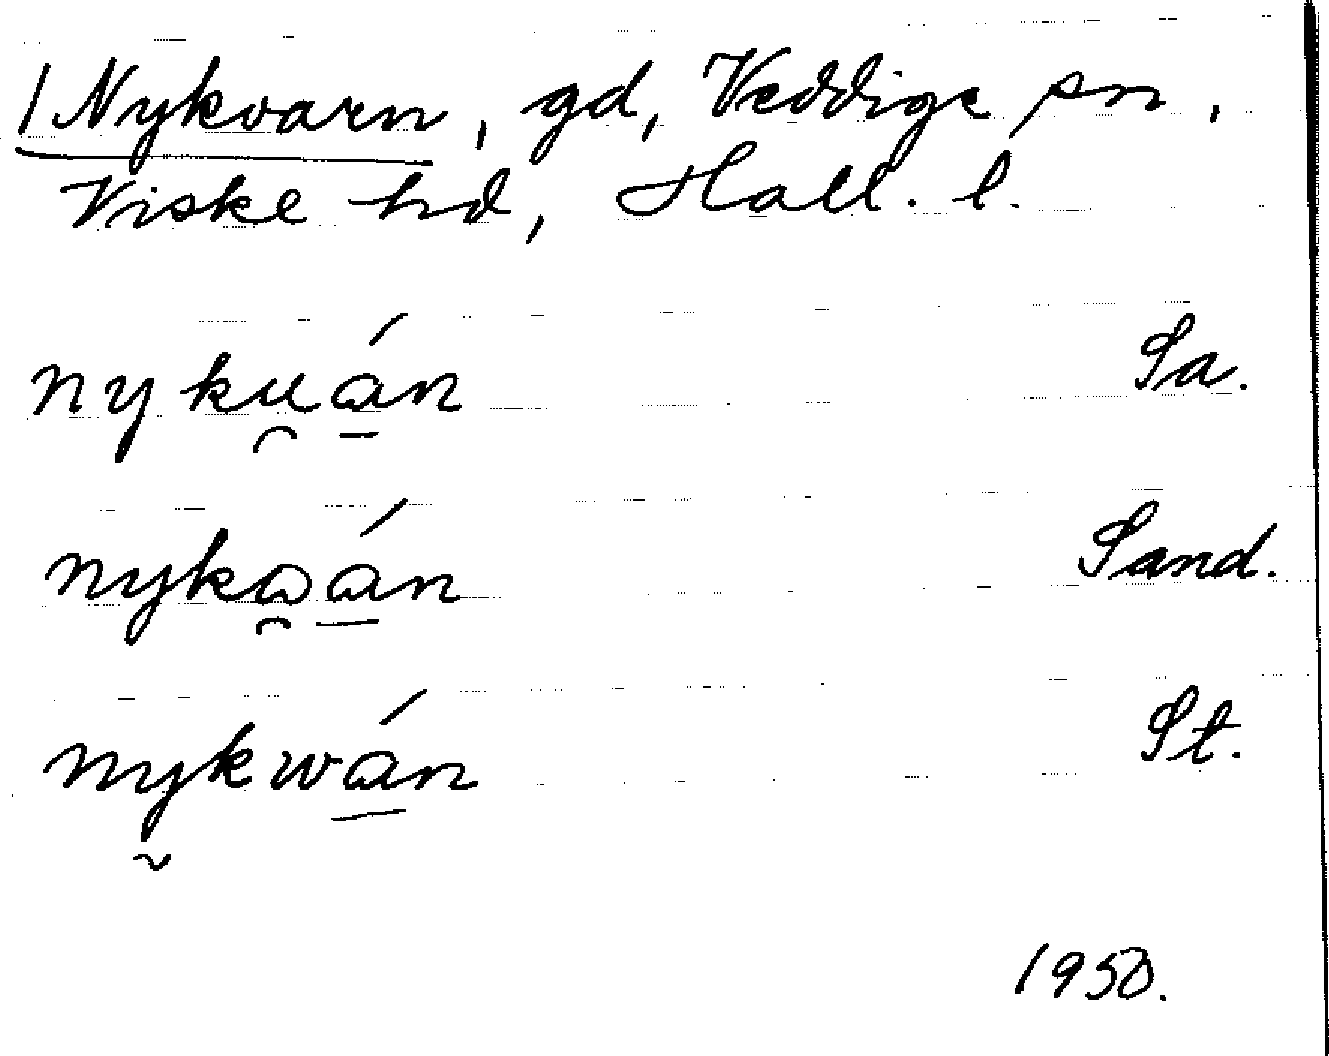 / Nykvarn, gd, Veddige sn,
Viske hd, Hall. l.
nyku̯á̱n Sa.
nykɷ̯á̱n Sand.
ny̰kwá̱n St.
1950.